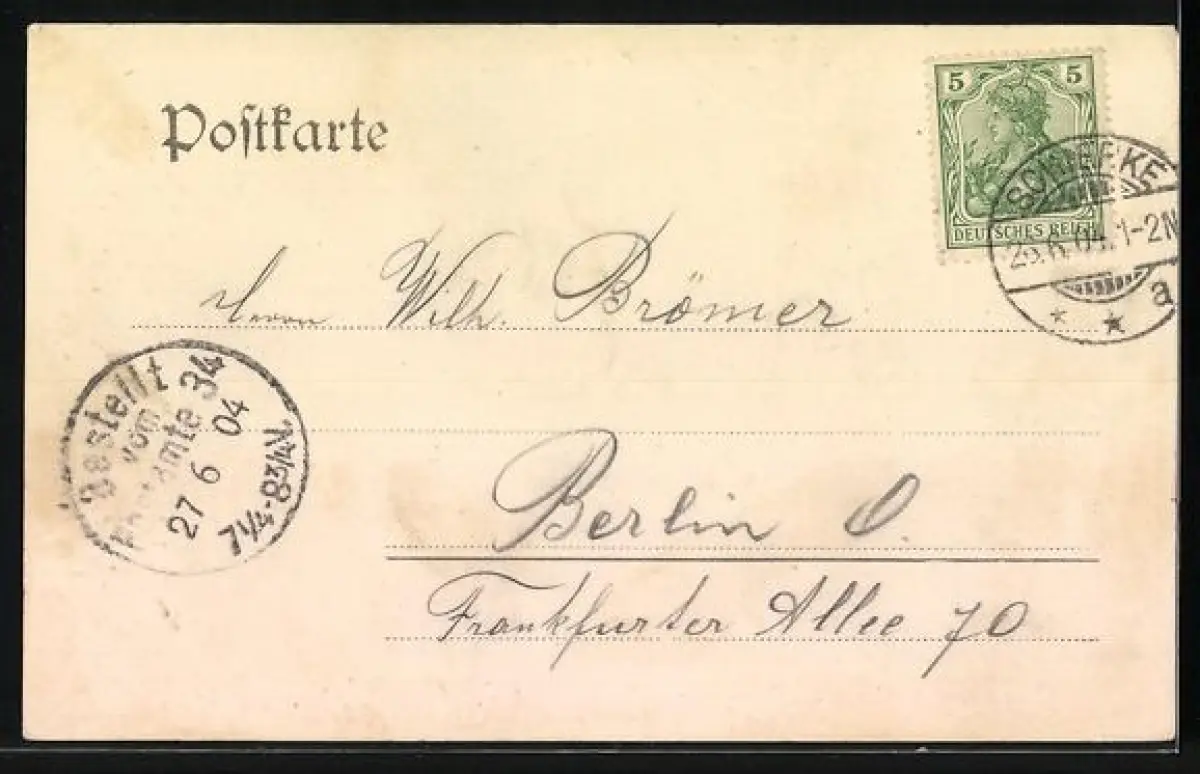 Postkarte
5 5
DEUTSCHES REICH
SCHIERKE
6.04. 1-2N
a
* *
Herrn Wilh. Brömer
Bestellt
vom
Postamte 34
27 6 04
7¼-8¾N.
Berlin O.
Frankfurter Allee 70